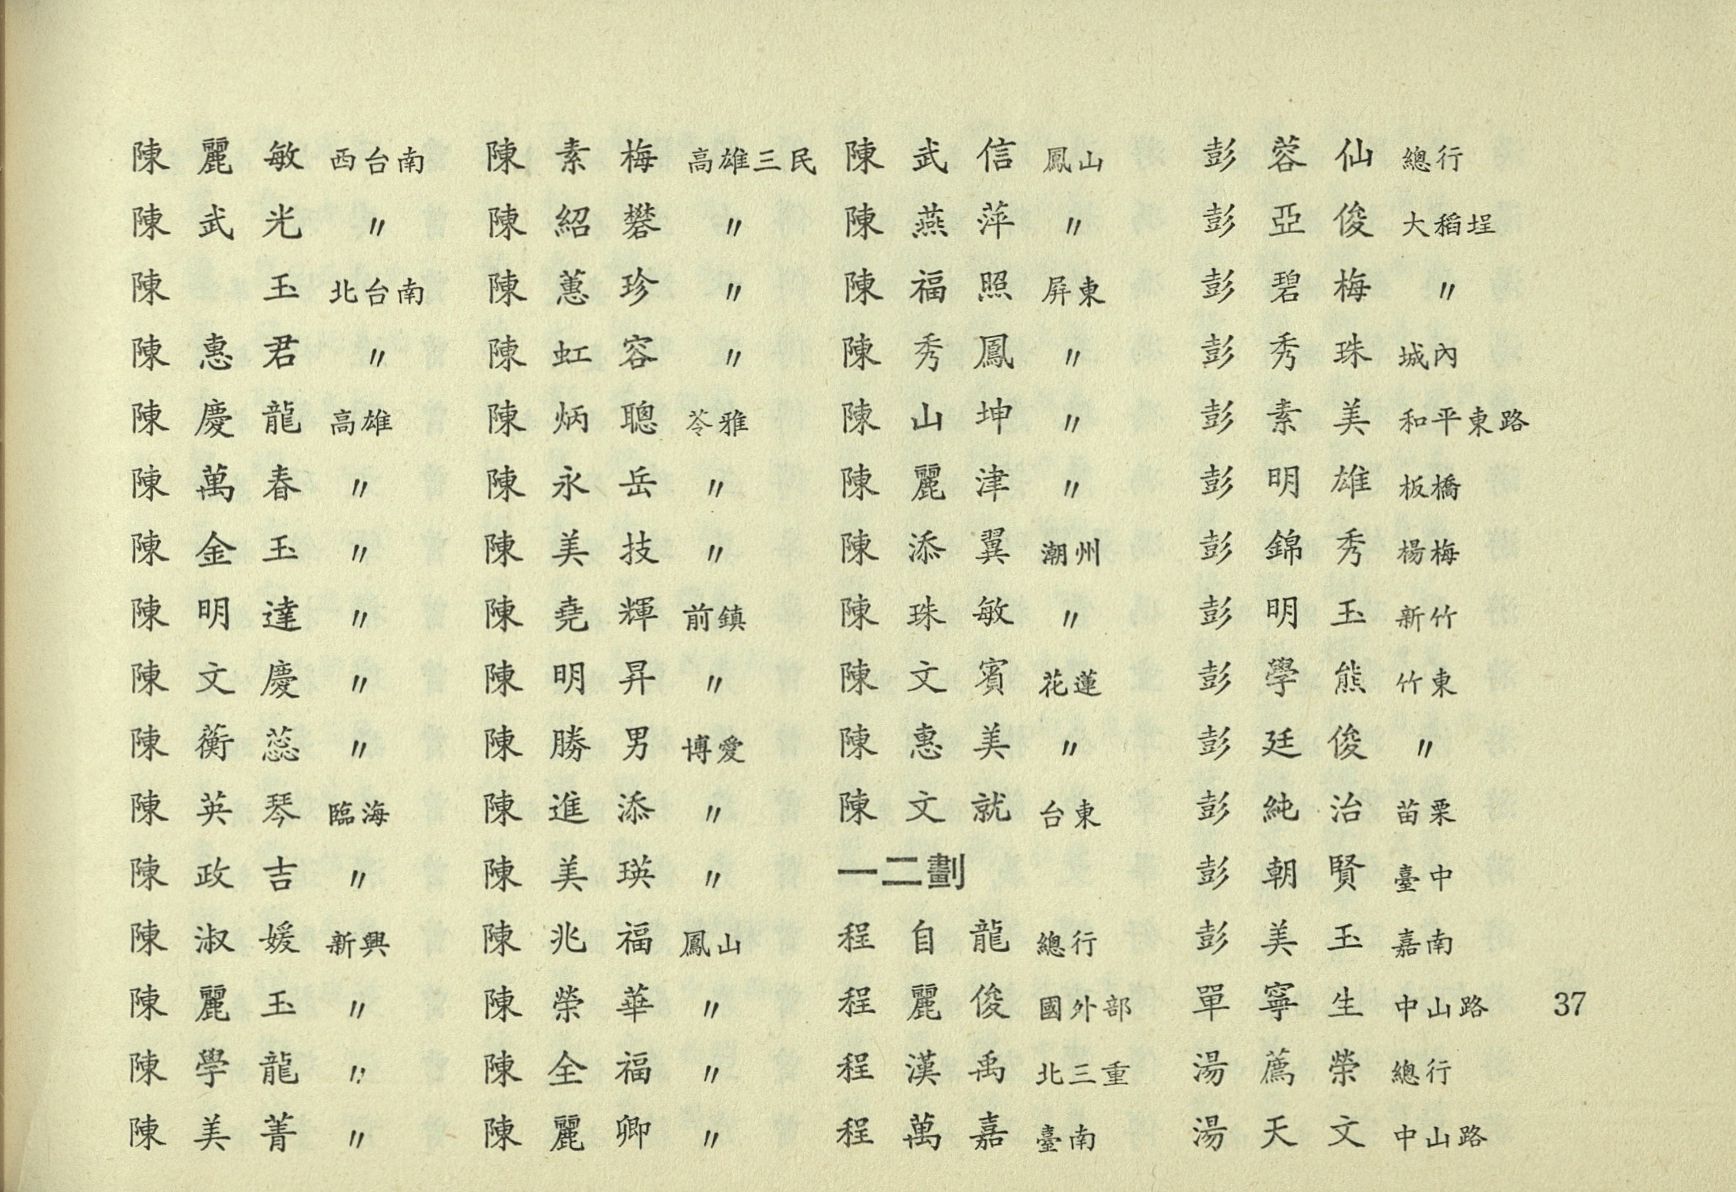 陳麗敏 西台南
陳武光 〃
陳　玉 北台南
陳惠君 〃
陳慶龍 高雄
陳萬春 〃
陳金玉 〃
陳明達 〃
陳文慶 〃
陳蘅蕊 〃
陳英琴 臨海
陳政吉 〃
陳淑媛 新興
陳麗玉 〃
陳學龍 〃
陳美菁 〃
陳素梅 高雄三民
陳紹礬 〃
陳蕙珍 〃
陳虹容 〃
陳炳聰 苓雅
陳永岳 〃
陳美技 〃
陳堯輝 前鎮
陳明昇 〃
陳勝男 博愛
陳進添 〃
陳美瑛 〃
陳兆福 鳳山
陳榮華 〃
陳全福 〃
陳麗卿 〃
陳武信 鳳山
陳燕萍 〃
陳福照 屏東
陳秀鳳 〃
陳山坤 〃
陳麗津 〃
陳添翼 潮州
陳珠敏 〃
陳文賓 花蓮
陳惠美 〃
陳文就 台東
一二劃
程自龍 總行
程麗俊 國外部
程漢禹 北三重
程萬嘉 臺南
彭蓉仙 總行
彭亞俊 大稻埕
彭碧梅 〃
彭秀珠 城內
彭素美 和平東路
彭明雄 板橋
彭錦秀 楊梅
彭明玉 新竹
彭學熊 竹東
彭廷俊 〃
彭純治 苗栗
彭朝賢 臺中
彭美玉 嘉南
單寧生 中山路
湯薦榮 總行
湯天文 中山路
37